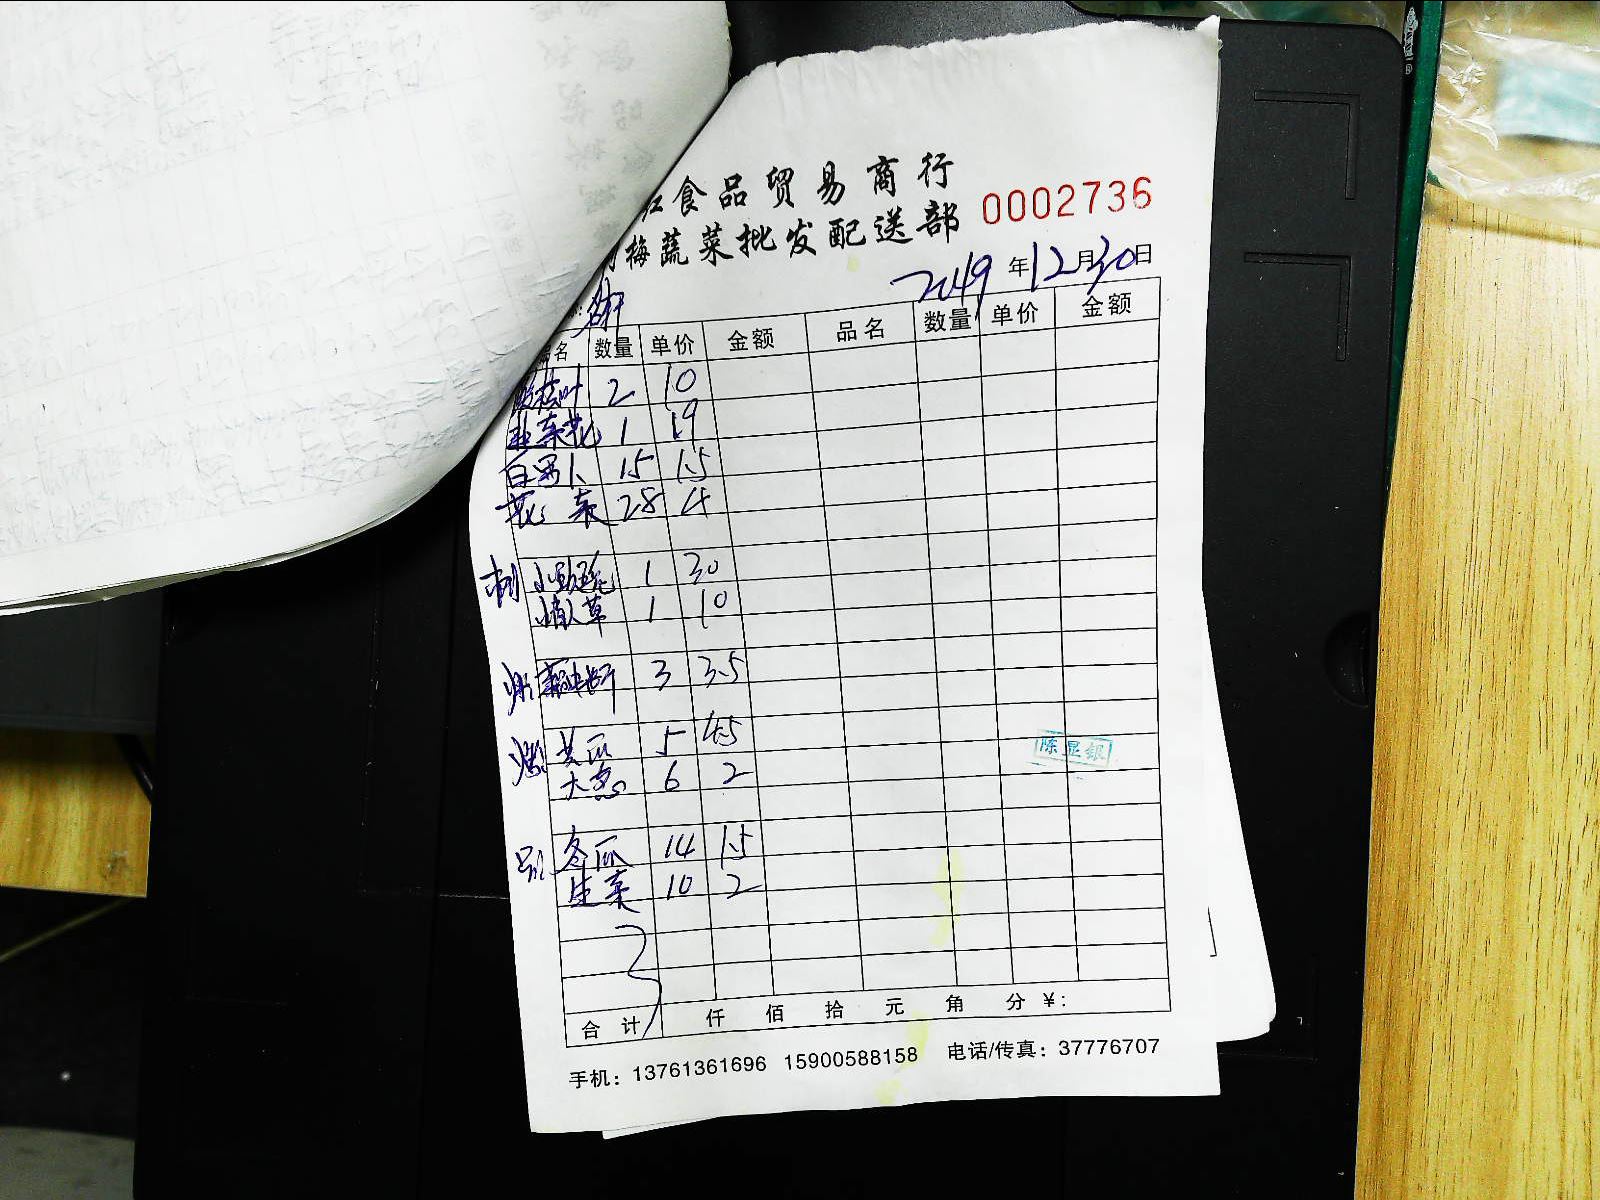 食品贸易商行
梅蔬菜批发配送部 0002736
2019年12月30日
名 数量 单价 金额 品名 数量 单价 金额
叶 2 10
韭菜花 1 19
白罗卜 15 1.5
花菜 28 4
小 1 30
草 1 10
3 3.5
黄瓜 5 4.5
大葱 6 2
冬瓜 14 1.5
生菜 10 2
陈显银
合计 仟 佰 拾 元 角 分 ¥:
手机：13761361696 15900588158 电话/传真：37776707